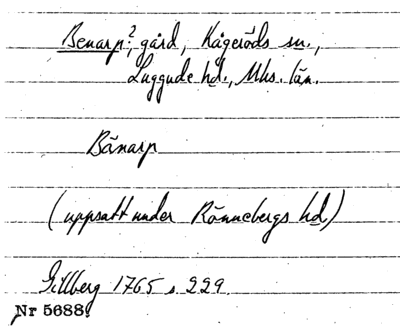 Benarp?, gård, Kågeröds sn.,
Luggude hd., Mhs. län.
Bänarp
(uppsatt under Rönnebergs hd)
Gillberg 1765 s 229.
Nr 5688.